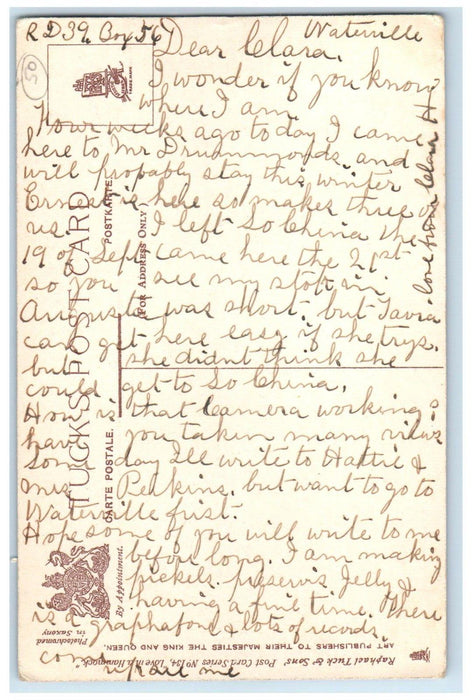 R D 39, Box 56 Waterville
Dear Clara.
I wonder if you know
where I am.
Four weeks ago to day I came
here to Mr Drummonds, and
will probably stay this winter
Ernest is here so makes three of
us. I left So China the
19 of Sept came here the 21st
so you see my stop in
Augusta was short. but
can get here easy if she trys.
but she didnt think she
could get to So China.
How is that Camera working?
have you taken many views
Some day Ill write to Hattie &
Mrs Perkins, but want to go to
Waterville first.
Hope some of you will write to me
before long. I am making
pickels. preservis Jelly &
having a fine time. There
is a graphafone & lots of records.
love from Clara H
05
TRADE MARK
TUCK'S POST CARD
POSTKARTE
(FOR ADDRESS ONLY)
CARTE POSTALE.
By Appointment.
Raphael Tuck & Sons' Post Card Series No 134, Love in a Hammock.
ART PUBLISHERS TO THEIR MAJESTIES THE KING AND QUEEN.
Photochromed
in Saxony